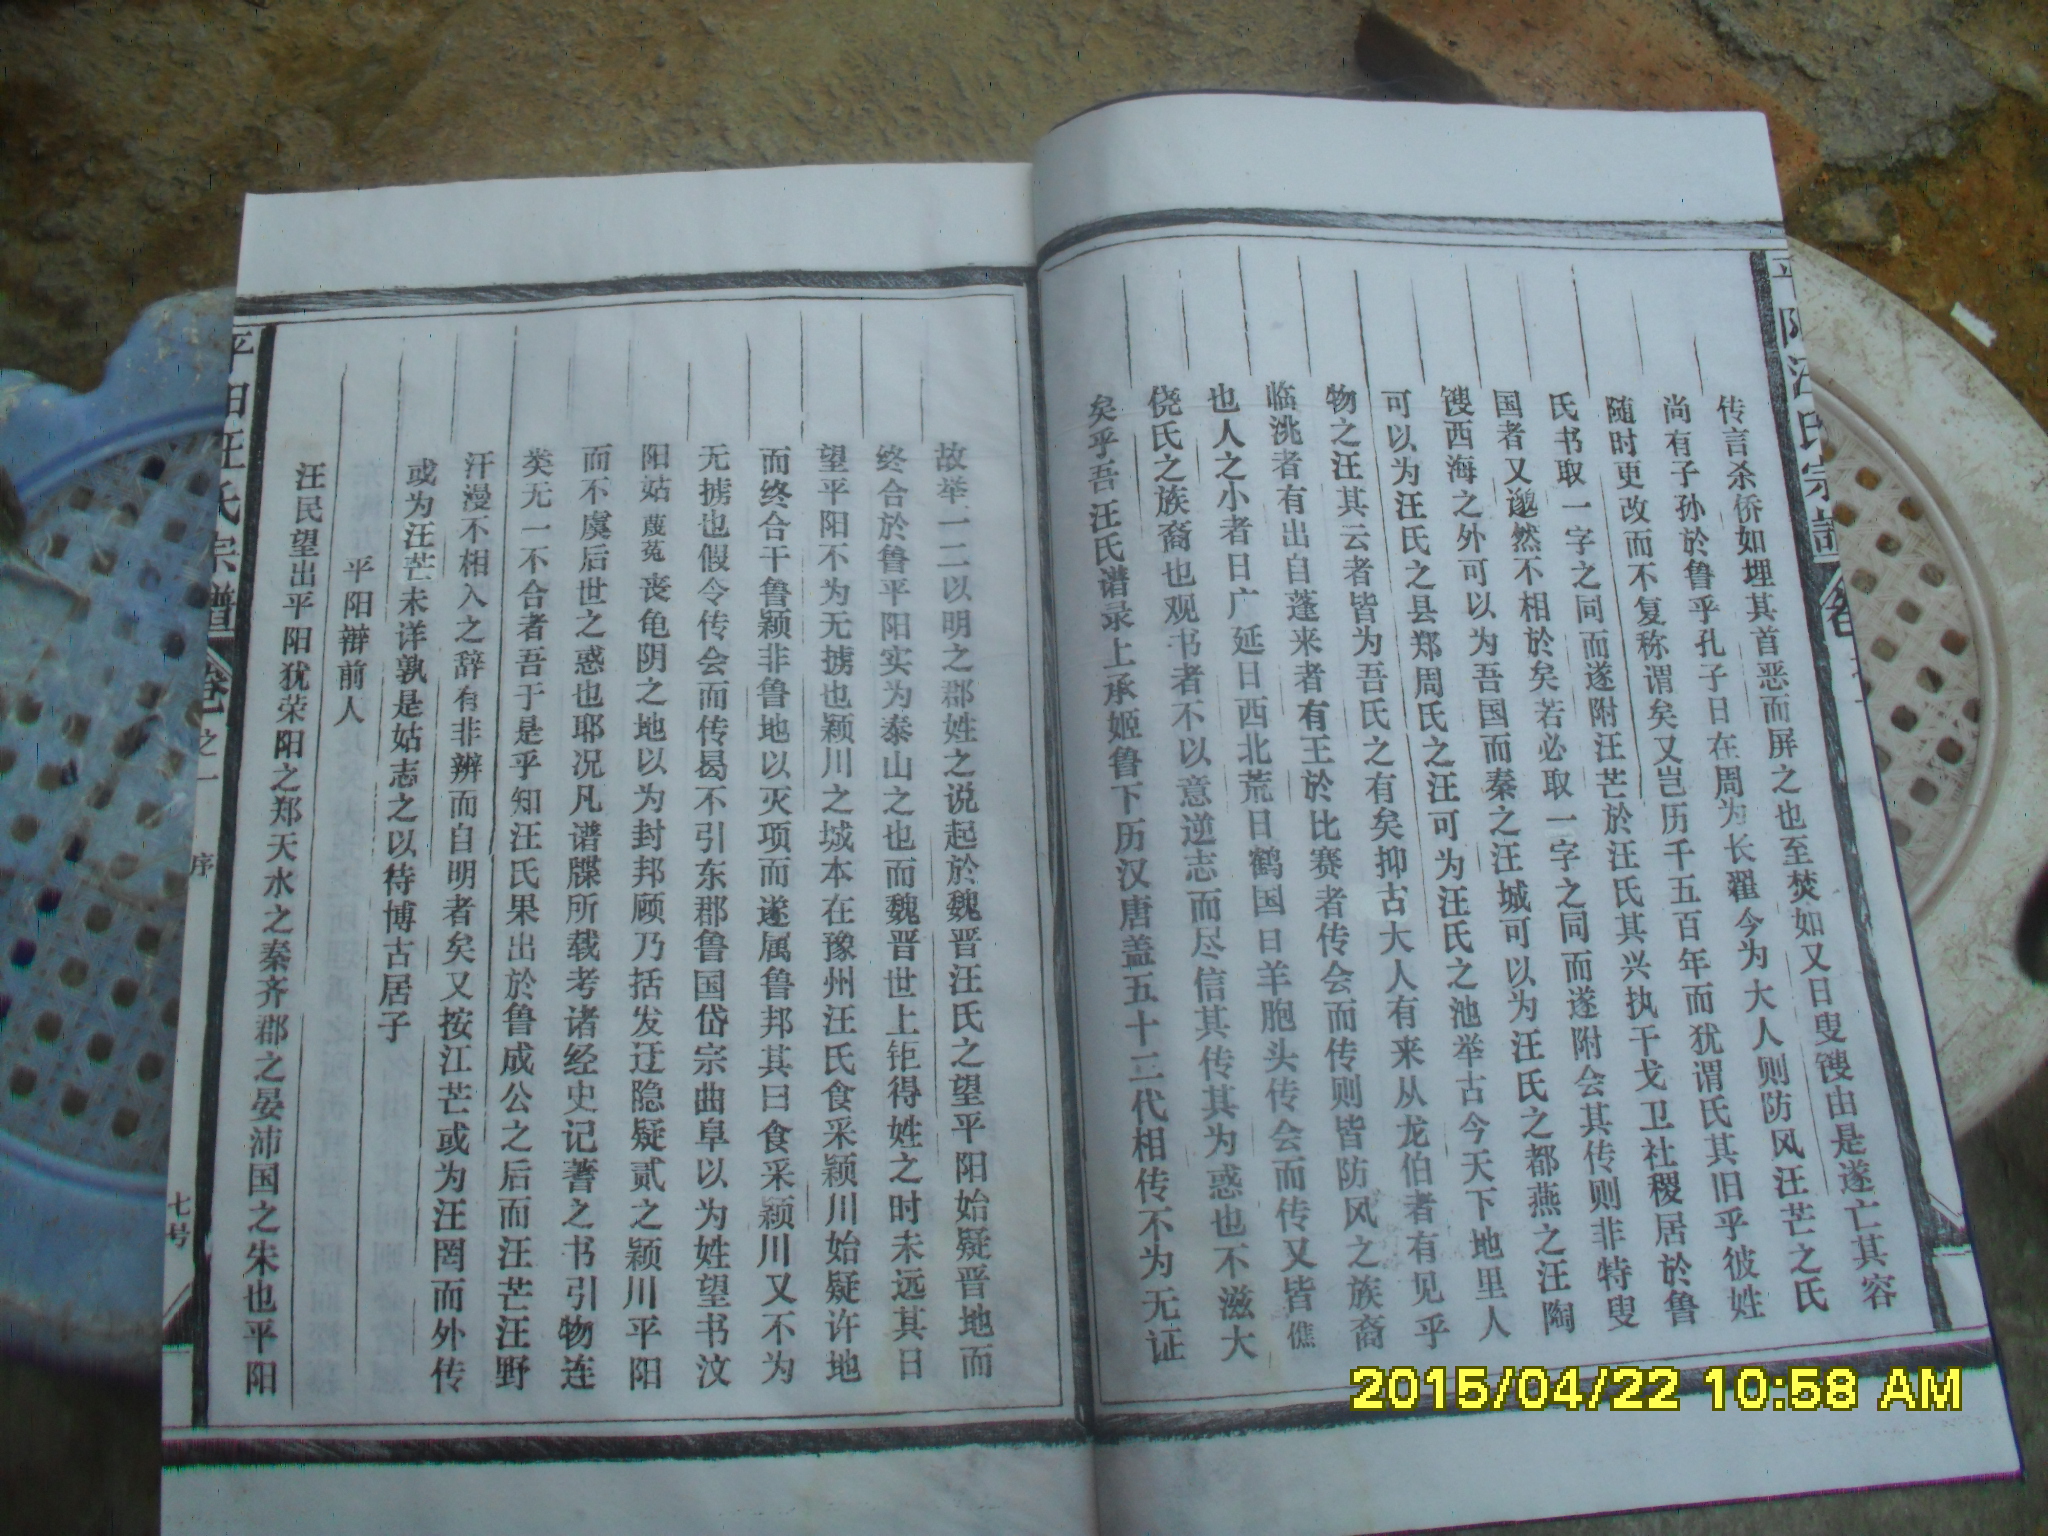 平阳汪氏宗谱
传言杀侨如埋其首恶而屏之也至焚如又曰叟馊由是遂亡其容
尚有子孙於鲁乎孔子曰在周为长翟今为大人则防风汪芒之氏
随时更改而不复称谓矣又岂历千五百年而犹谓氏其旧乎彼姓
氏书取一字之同而遂附汪芒於汪氏其兴执干戈卫社稷居於鲁
国者又邈然不相於矣若必取一字之同而遂附会其传则非特叟
馊西海之外可以为吾国而秦之汪城可以为汪氏之都燕之汪陶
可以为汪氏之县郑周氏之汪可为汪氏之池举古今天下地里人
物之汪其云者皆为吾氏之有矣抑古大人有来从龙伯者有见乎
临洮者有出自蓬来者有王於比赛者传会而传则皆防风之族裔
也人之小者日广延日西北荒日鹤国日羊胞头传会而传又皆僬
侥氏之族裔也观书者不以意逆志而尽信其传其为惑也不滋大
矣乎吾汪氏谱录上承姬鲁下历汉唐盖五十二代相传不为无证
故举一二以明之郡姓之说起於魏晋汪氏之望平阳始疑晋地而
终合於鲁平阳实为泰山之也而魏晋世上钜得姓之时未远其日
望平阳不为无掳也颖川之城本在豫州汪氏食采颖川始疑许地
而终合干鲁颖非鲁地以灭项而遂属鲁邦其曰食采颖川又不为
无掳也假令传会而传曷不引东郡鲁国岱宗曲阜以为姓望书汶
阳姑蔑菟丧龟阴之地以为封邦顾乃括发迂隐疑贰之颖川平阳
而不虞后世之惑也耶况凡谱牒所载考诸经史记蓍之书引物连
类无一不合者吾于是乎知汪氏果出於鲁成公之后而汪芒汪野
汗漫不相入之辞有非辨而自明者矣又按江芒或为汪罔而外传
或为汪芒未详孰是姑志之以待博古居子
平阳辩前人
汪民望出平阳犹荣阳之郑天水之秦齐郡之晏沛国之朱也平阳
平阳汪氏宗谱 卷之一 序 七号
2015/04/22 10:58 AM